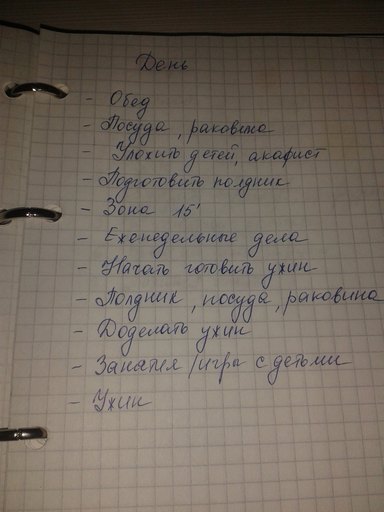 День
- Обед
- Посуда, раковина
- Уложить детей, акафист
- Подготовить полдник
- Зона 15'
- Еженедельные дела
- Начать готовить ужин
- Полдник, посуда, раковина
- Доделать ужин
- Занятия /игры с детьми
- Ужин